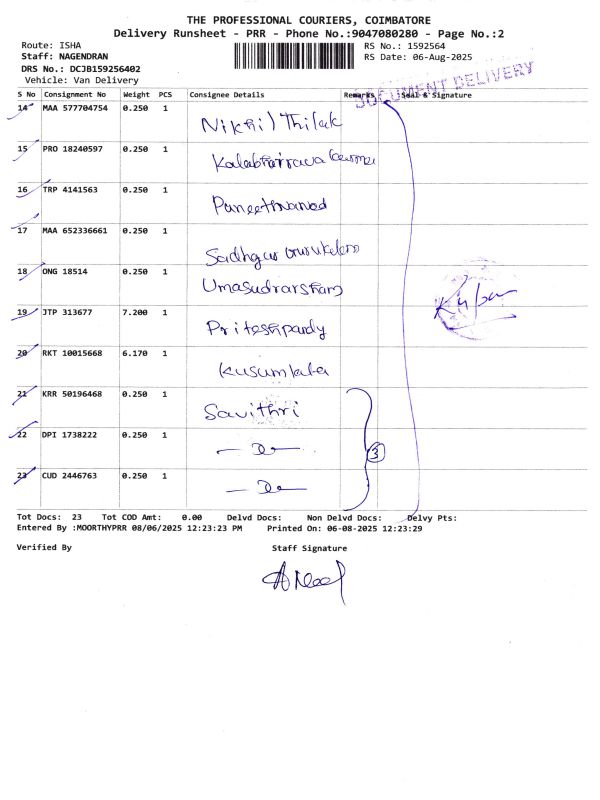 THE PROFESSIONAL COURIERS, COIMBATORE
Delivery Runsheet - PRR - Phone No.:9047080280 - Page No.:2
Route: ISHA RS No.: 1592564
Staff: NAGENDRAN RS Date: 06-Aug-2025
DRS No.: DCJB159256402
Vehicle: Van Delivery
DOCUMENT DELIVERY
S No Consignment No Weight PCS Consignee Details Remarks Seal & Signature
14 MAA 577704754 0.250 1 Nikhil Thilak
15 PRO 18240597 0.250 1 Kalabhairava
16 TRP 4141563 0.250 1
17 MAA 652336661 0.250 1 Sadhguru Gurukulam
18 ONG 18514 0.250 1
19 JTP 313677 7.200 1
20 RKT 10015668 6.170 1 Kusumlata
21 KRR 50196468 0.250 1 Savithri
22 DPI 1738222 0.250 1 — Do —
23 CUD 2446763 0.250 1 — Do —
3
Tot Docs: 23 Tot COD Amt: 0.00 Delvd Docs: Non Delvd Docs: Delvy Pts:
Entered By :MOORTHYPRR 08/06/2025 12:23:23 PM Printed On: 06-08-2025 12:23:29
Verified By Staff Signature